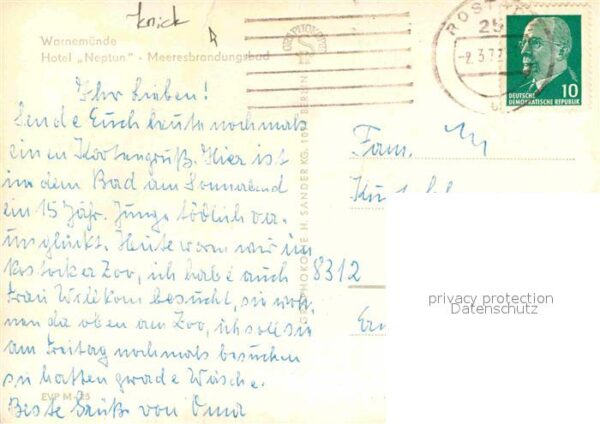 knick
Warnemünde
Hotel „Neptun" - Meeresbrandungsbad
Ihr Lieben!
Sende Euch heute nochmals
einen Kartengruß. Hier ist
in dem Bad am Sonnabend
ein 15 Jähr. Junge tödlich ver-
unglückt. Heute waren wir im
Rostocker Zoo, ich habe auch
Frau besucht, sie woh-
nen da oben am Zoo, ich soll sie
am Freitag nochmals besuchen
sie hatten gerade Wäsche.
Beste Grüße von Oma
EVP M
GRAPHOKOPIE H. SANDER KG, BERLIN
GRAPHOKOPIE
ROSTOCK
25
-2.3.72
10
DEUTSCHE
DEMOKRATISCHE REPUBLIK
Fam.
8312
privacy protection
Datenschutz